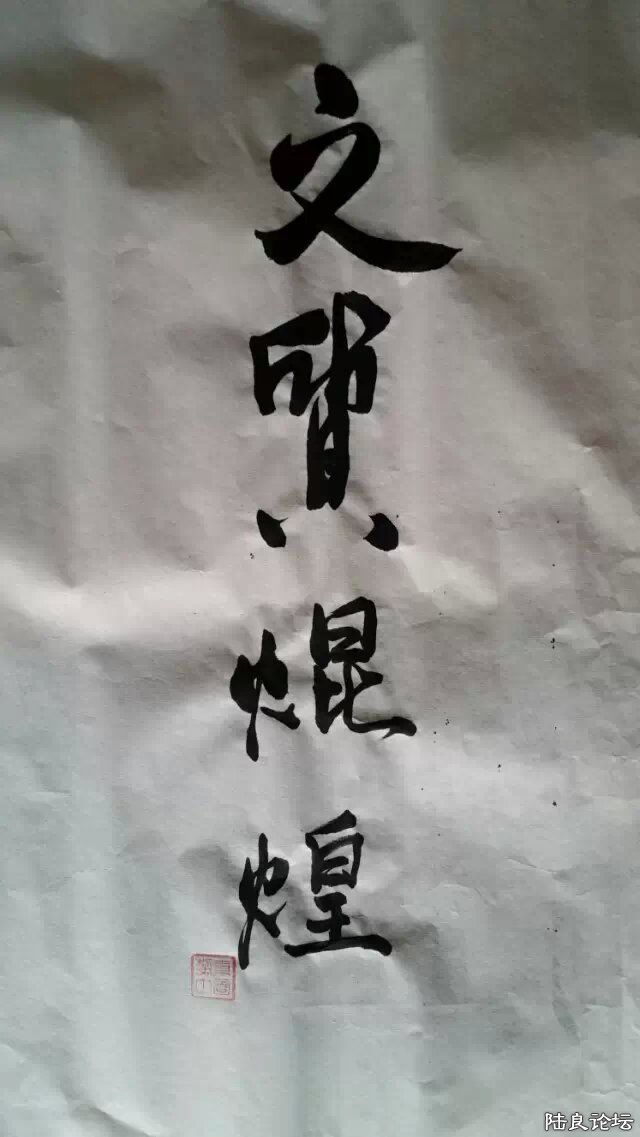 文質焜煌
陆良论坛